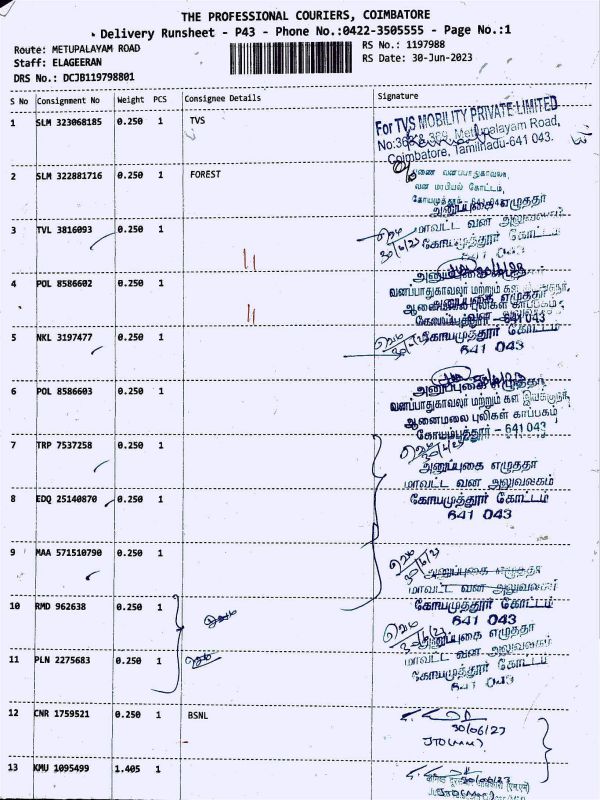 THE PROFESSIONAL COURIERS, COIMBATORE
Delivery Runsheet - P43 - Phone No.:0422-3505555 - Page No.:1
Route: METUPALAYAM ROAD
RS No.: 1197988
Staff: ELAGEERAN
RS Date: 30-Jun-2023
DRS No.: DCJB119798801
S No Consignment No Weight PCS Consignee Details Signature
1 SLM 323068185 0.250 1 TVS
For TVS MOBILITY PRIVATE LIMITED
Metupalayam Road,
Coimbatore, Tamilnadu-641 043.
2 SLM 322881716 0.250 1 FOREST
அனுப்புகை எழுத்தர்
3 TVL 3816093 0.250 1
மாவட்ட வன அலுவலகம்
30/6/23 கோயமுத்தூர் கோட்டம்
641 043
4 POL 8586602 0.250 1
வனப்பாதுகாவலர் மற்றும் கள
ஆனைமலை புலிகள் காப்பகம்
641 043
5 NKL 3197477 0.250 1
கோயமுத்தூர் கோட்டம்
641 043
6 POL 8586603 0.250 1
வனப்பாதுகாவலர் மற்றும் கள இயக்குநர்,
ஆனைமலை புலிகள் காப்பகம்,
கோயம்புத்தூர் - 641043
7 TRP 7537258 0.250 1
அனுப்புகை எழுத்தர்
மாவட்ட வன அலுவலகம்
8 EDQ 25140870 0.250 1
கோயமுத்தூர் கோட்டம்
641 043
9 MAA 571510790 0.250 1
30/6/23
அனுப்புகை எழுத்தர்
மாவட்ட வன அலுவலகம்
10 RMD 962638 0.250 1
கோயமுத்தூர் கோட்டம்
641 043
30/6/23
அனுப்புகை எழுத்தர்
11 PLN 2275683 0.250 1
மாவட்ட வன அலுவலகம்
கோயமுத்தூர் கோட்டம்
641 043
12 CNR 1759521 0.250 1 BSNL
30/06/23
JTO(MM)
13 KMU 1095499 1.405 1
30/06/23